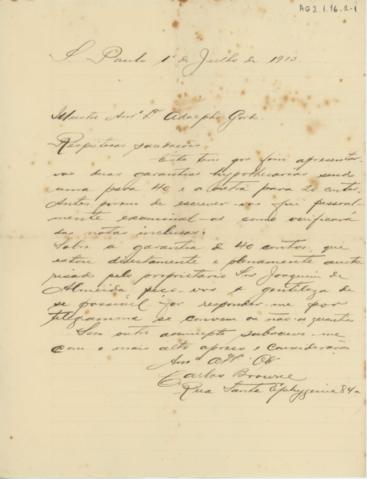 AG2.1.16.2-1
S. Paulo 1º de Julho de 1910
Illustre Amº Dr Adolpho Gordo
Respeitosas saudações
Esta tem por fim apresentar
vos duas garantias hypothecarias sendo
uma para 40 e a outra para 20 contos.
Antes porem de escrever-vos fui pessoal-
mente examinal-as como verificará
das notas inclusas.
Sobre a garantia de 40 contos, que
estou directamente e plenamente auto
risado pelo proprietario Snr Joaquim de
Almeida peço-vos a gentileza de
se possivel for responder-me por
telegramma se convem ou não a garantia
Sem outro assumpto subscrevo-me
com o mais alto apreço e consideração
Amº
Carlos Browne
Rua Santa Ephygenia 84a